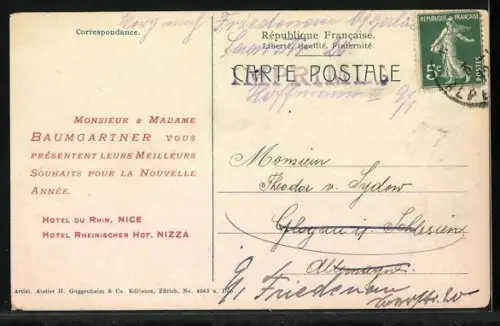 Correspondance.
Friedenau b/Berlin
République Française.
Liberté, Egalité, Fraternité.
CARTE POSTALE
Hoffmann II
REPUBLIQUE FRANÇAISE
5c
POSTES
MONSIEUR & MADAME
BAUMGARTNER VOUS
PRÉSENTENT LEURS MEILLEURS
SOUHAITS POUR LA NOUVELLE
ANNÉE.
HOTEL DU RHIN, NICE
HOTEL RHEINISCHER HOF, NIZZA
Monsieur
Theodor v. Sydow
Glogau i/ Schlesien
Allemagne
Friedenau
Artist. Atelier H. Guggenheim & Co. Editeurs, Zürich. No. 4943 a.